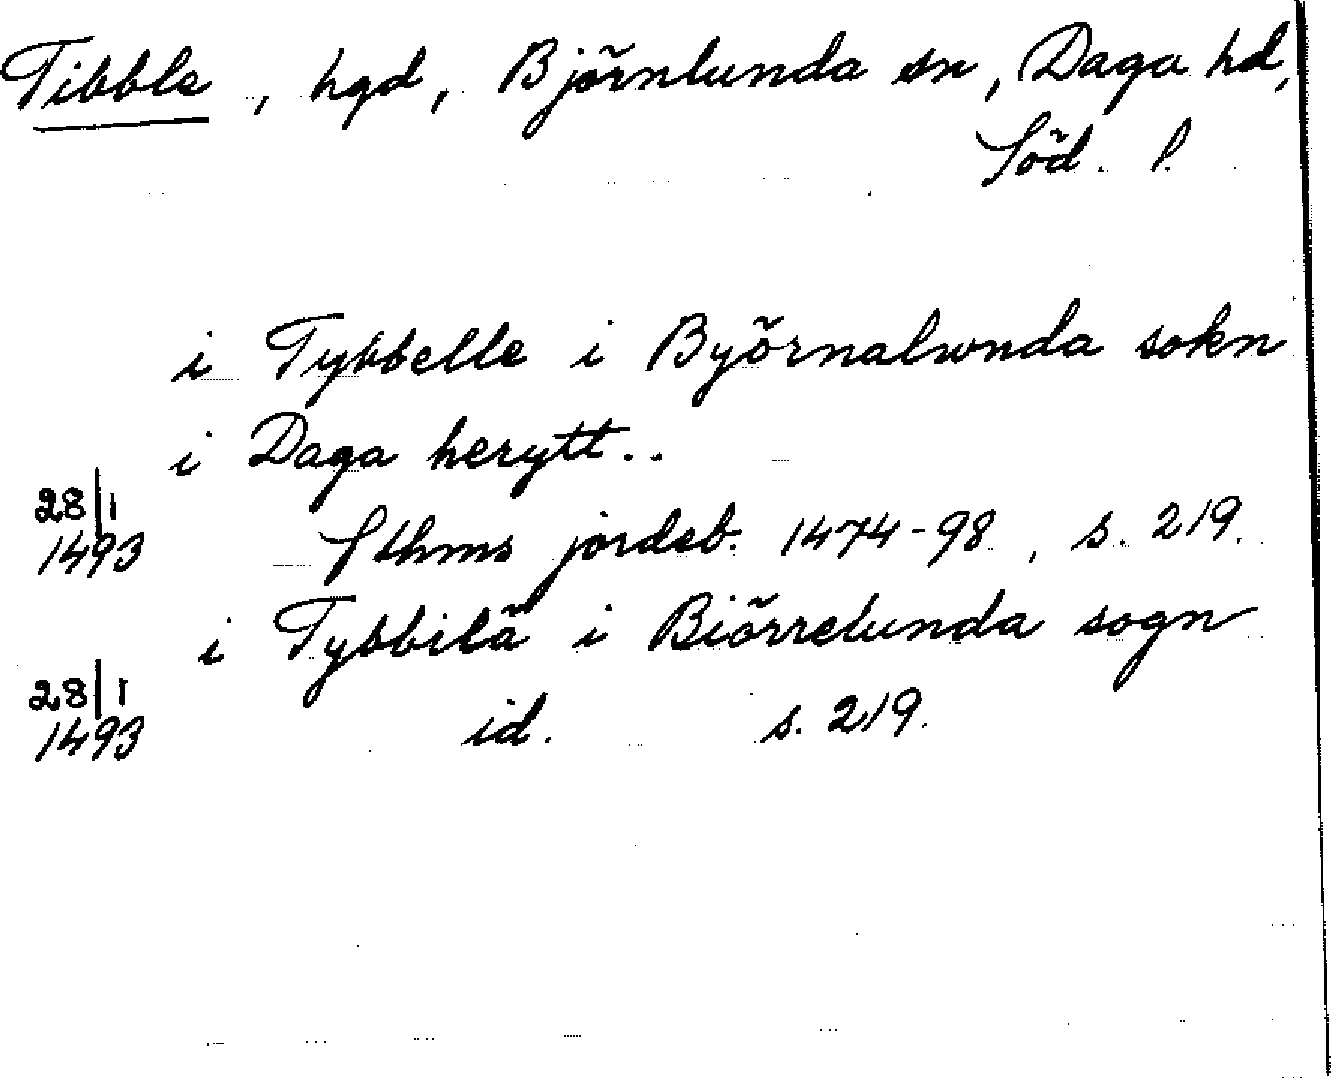 Tibble, hgd, Björnlunda sn, Daga hd,
Söd. l.
i Tybbelle i Byörnalwnda sokn
i Daga herytt..
28/1
1493 Sthms jordeb. 1474-98, s. 219.
i Tybbilä i Biörrelunda sogn
28/1
1493 id. s. 219.